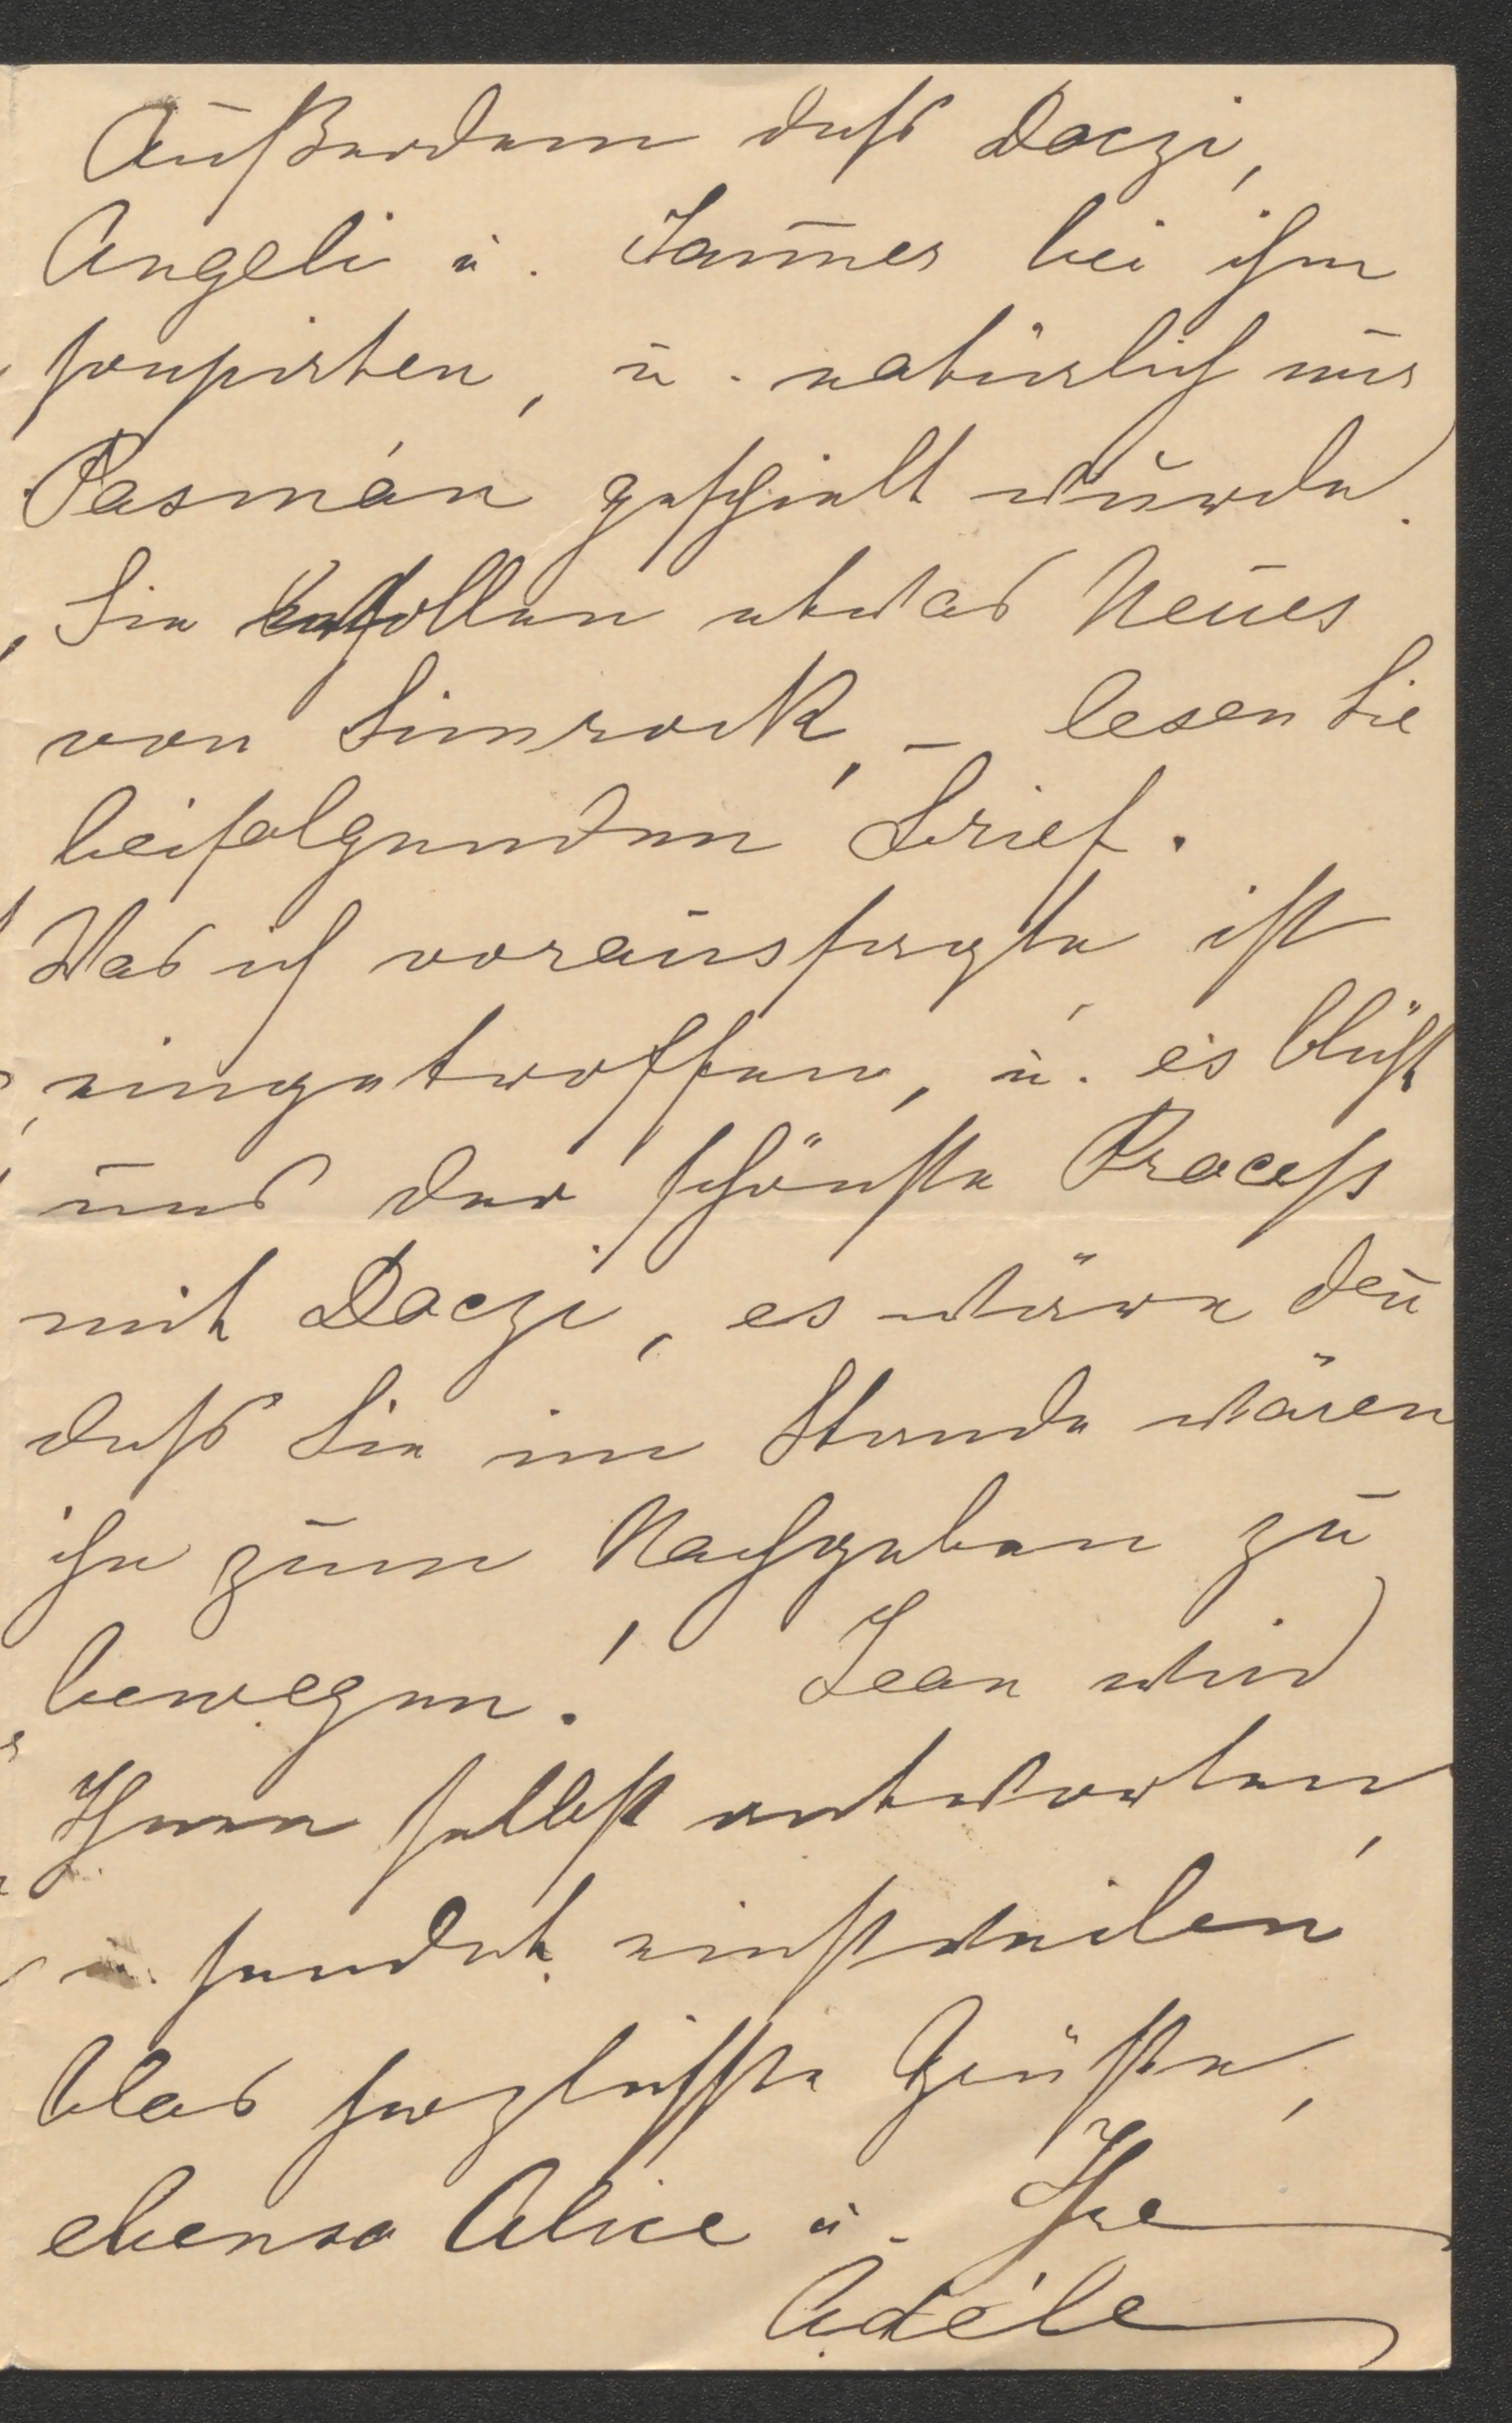 Außerdem daß Doczi,
Angeli u. Tau̅nes bei ihm
soupirten, u. natürlich nur
Pasmán gespielt wurde.
Sie wollen etwas Neues
von Simrock, – lesen Sie
beifolgenden Brief.
Was ich voraussagte ist
eingetroffen, u. es blüht
uns der schönste Process
mit Doczi, es wäre den̅
daß Sie im Stande wären
ihn zum Nachgeben zu
bewegen! Jean wird
Ihnen selbst antworten,
u. sendet einstweilen
blos herzlichste Grüße,
ebenso Alice u. Ihre
Adèle